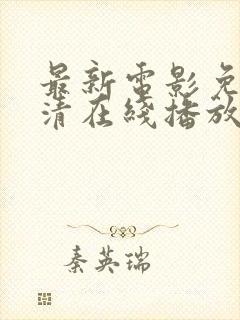 最新電影免
清在綫播放
秦英瑞